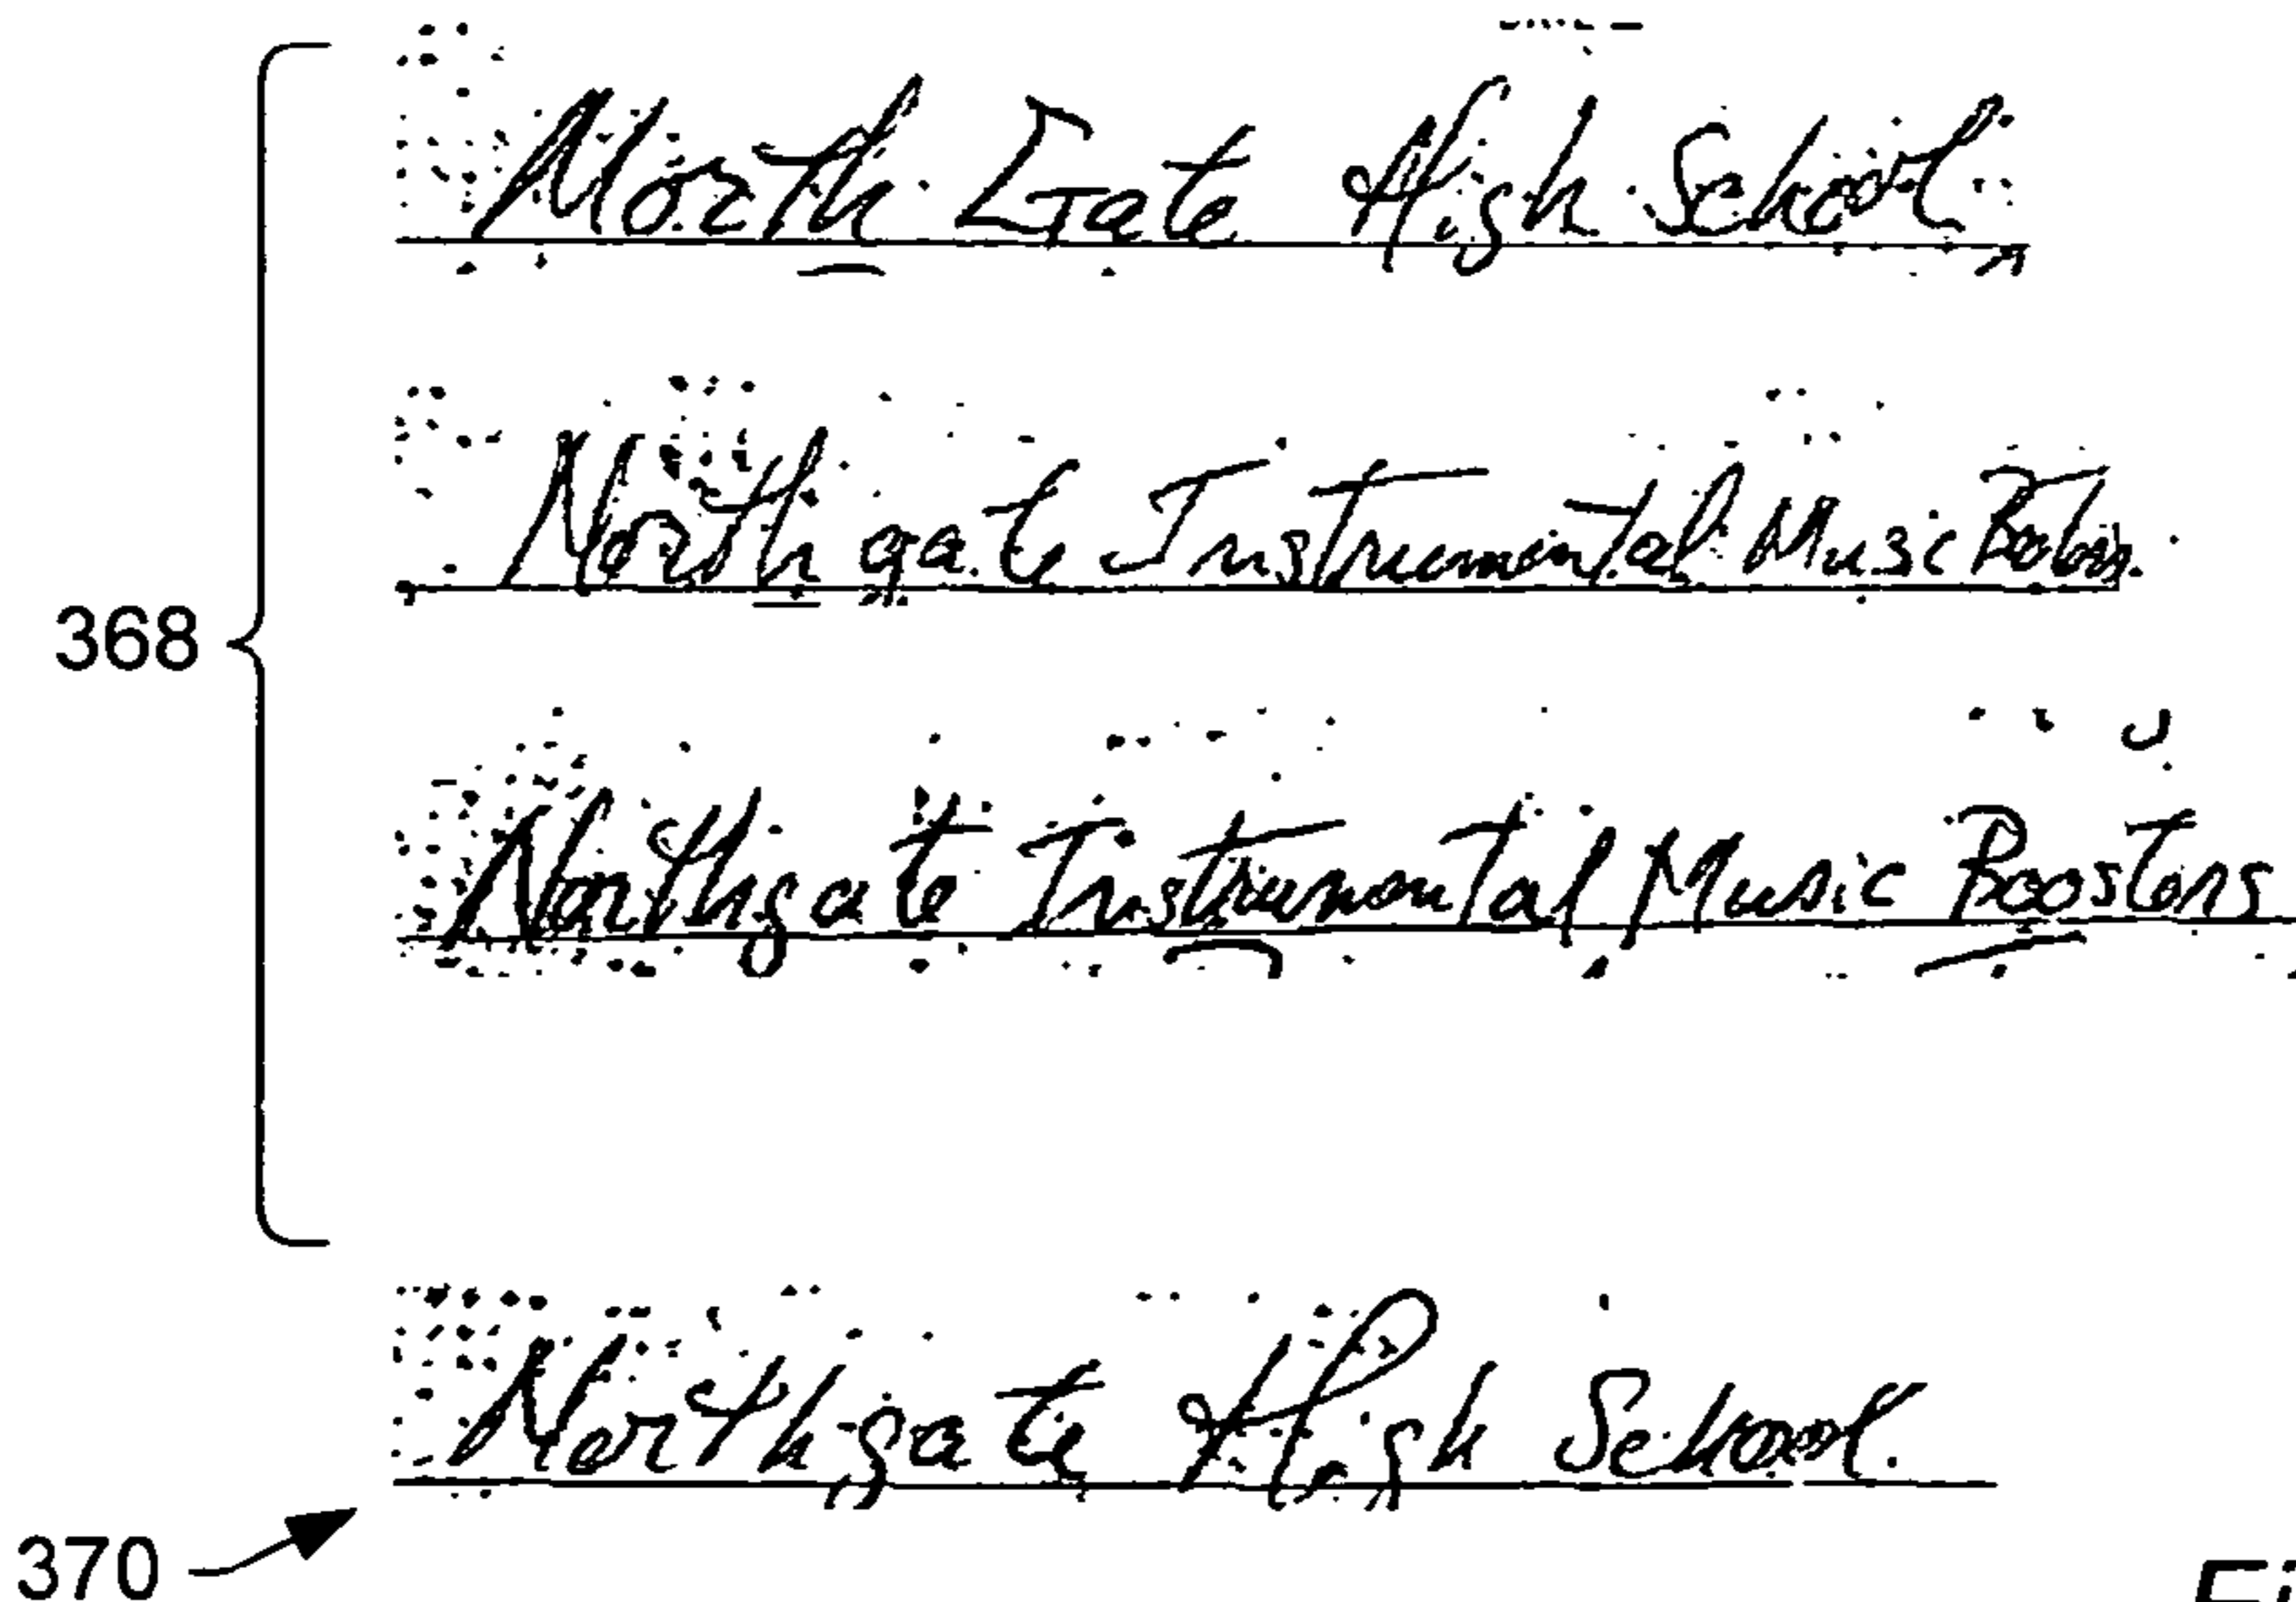 North Gate High School
Northgate Instrumental Music
368
Northgate Instrumental Music Boosters
Northgate High School
370